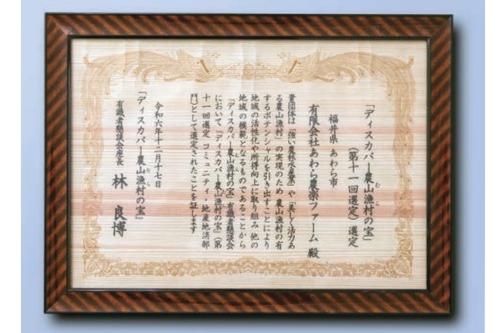 「ディスカバー農山漁村の宝」
（第十一回選定）選定
福井県 あわら市
有限会社あわら農楽ファーム 殿
貴団体は「強い農林水産業」や「美しく活力あ
る農山漁村」の実現のため農山漁村の有
するポテンシャルを引き出すことにより
地域の活性化や所得向上に取り組み他の
地域の模範となるものであることから
「ディスカバー農山漁村の宝」有識者懇談会
において「ディスカバー農山漁村の宝」（第
十一回選定 コミュニティ・地産地消部
門）として選定されたことを証します
令和六年十二月十七日
「ディスカバー農山漁村の宝」
有識者懇談会座長 林 良博